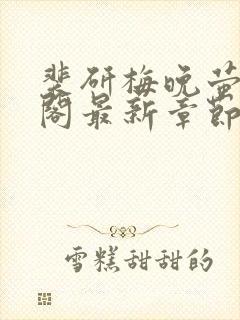 裴研梅晚萤
阁最新章节
雪糕甜甜的